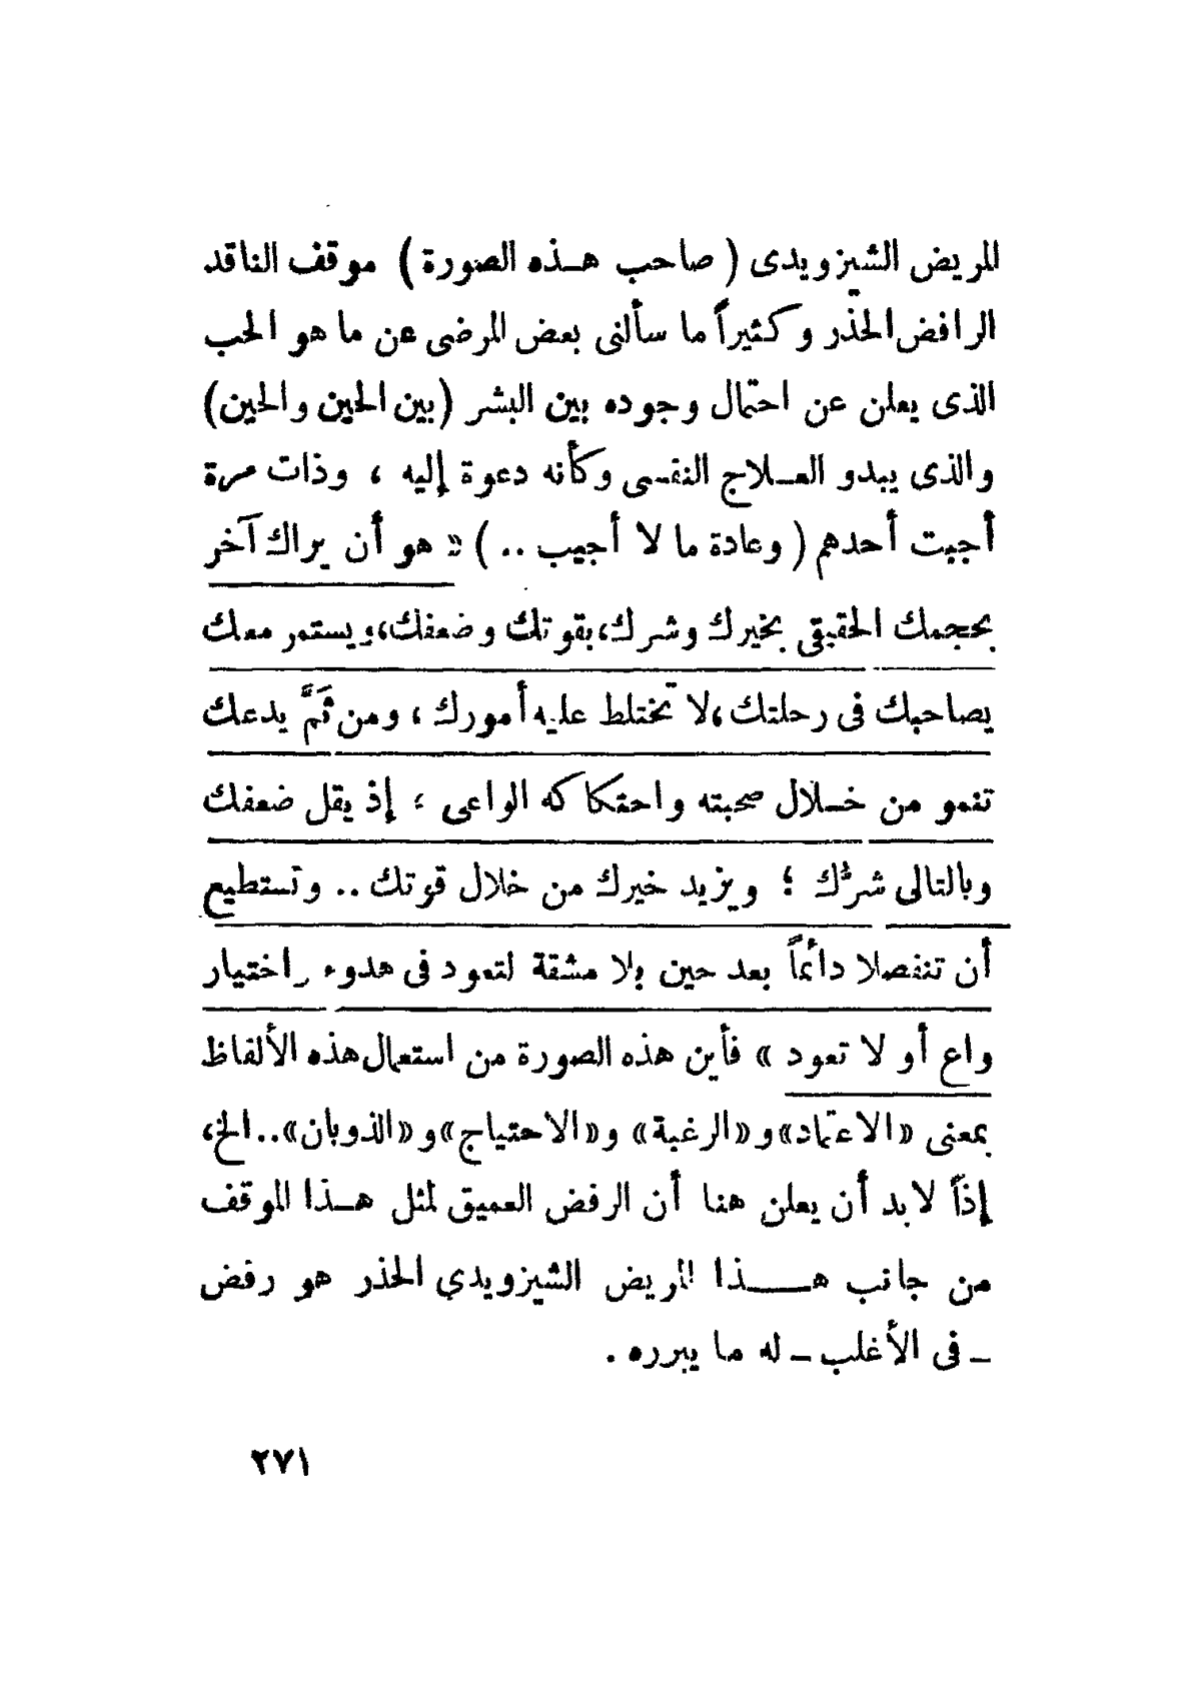 المريض الشيزويدى ( صاحب هـذه الصورة ) موقف الناقد
الرافض الحذّر وكثيراً ما سألنى بعض المرضى عن ما هو الحب
الذى يعلن عن احتمال وجوده بين البشر (بين الحين والحين)
والذى يبدو العـلاج النفسى وكأنه دعوة إليه ، وذات مرة
أجبت أحدهم ( وعادة ما لا أجيب .. ) « هو أن يراك آخر
بحجمك الحقيقى بخيرك وشرك، بقوتك وضعفك، ويستمر معك
يصاحبك فى رحلتك، لا تختلط عليه أمورك ، ومن ثَمَّ يدعك
تنمو من خـلال صحبته واحتكاكه الواعى ؛ إذ يقل ضعفك
وبالتالى شرُّك ؛ ويزيد خيرك من خلال قوتك .. وتستطيع
أن تنفصلا دائماً بعد حين بلا مشقة لتعود فى هدوء واختيار
واع أو لا تعود » فأين هذه الصورة من استعمال هذه الألفاظ
بمعنى «الاعتماد» و«الرغبة» و«الاحتياج» و«الذوبان».. الخ،
إذاً لابد أن يعلن هنا أن الرفض العميق لمثل هـذا الموقف
من جانب هـــذا المريض الشيزويدي الحذر هو رفض
ــ فى الأغلب ــ له ما يبرره .
٢٧١